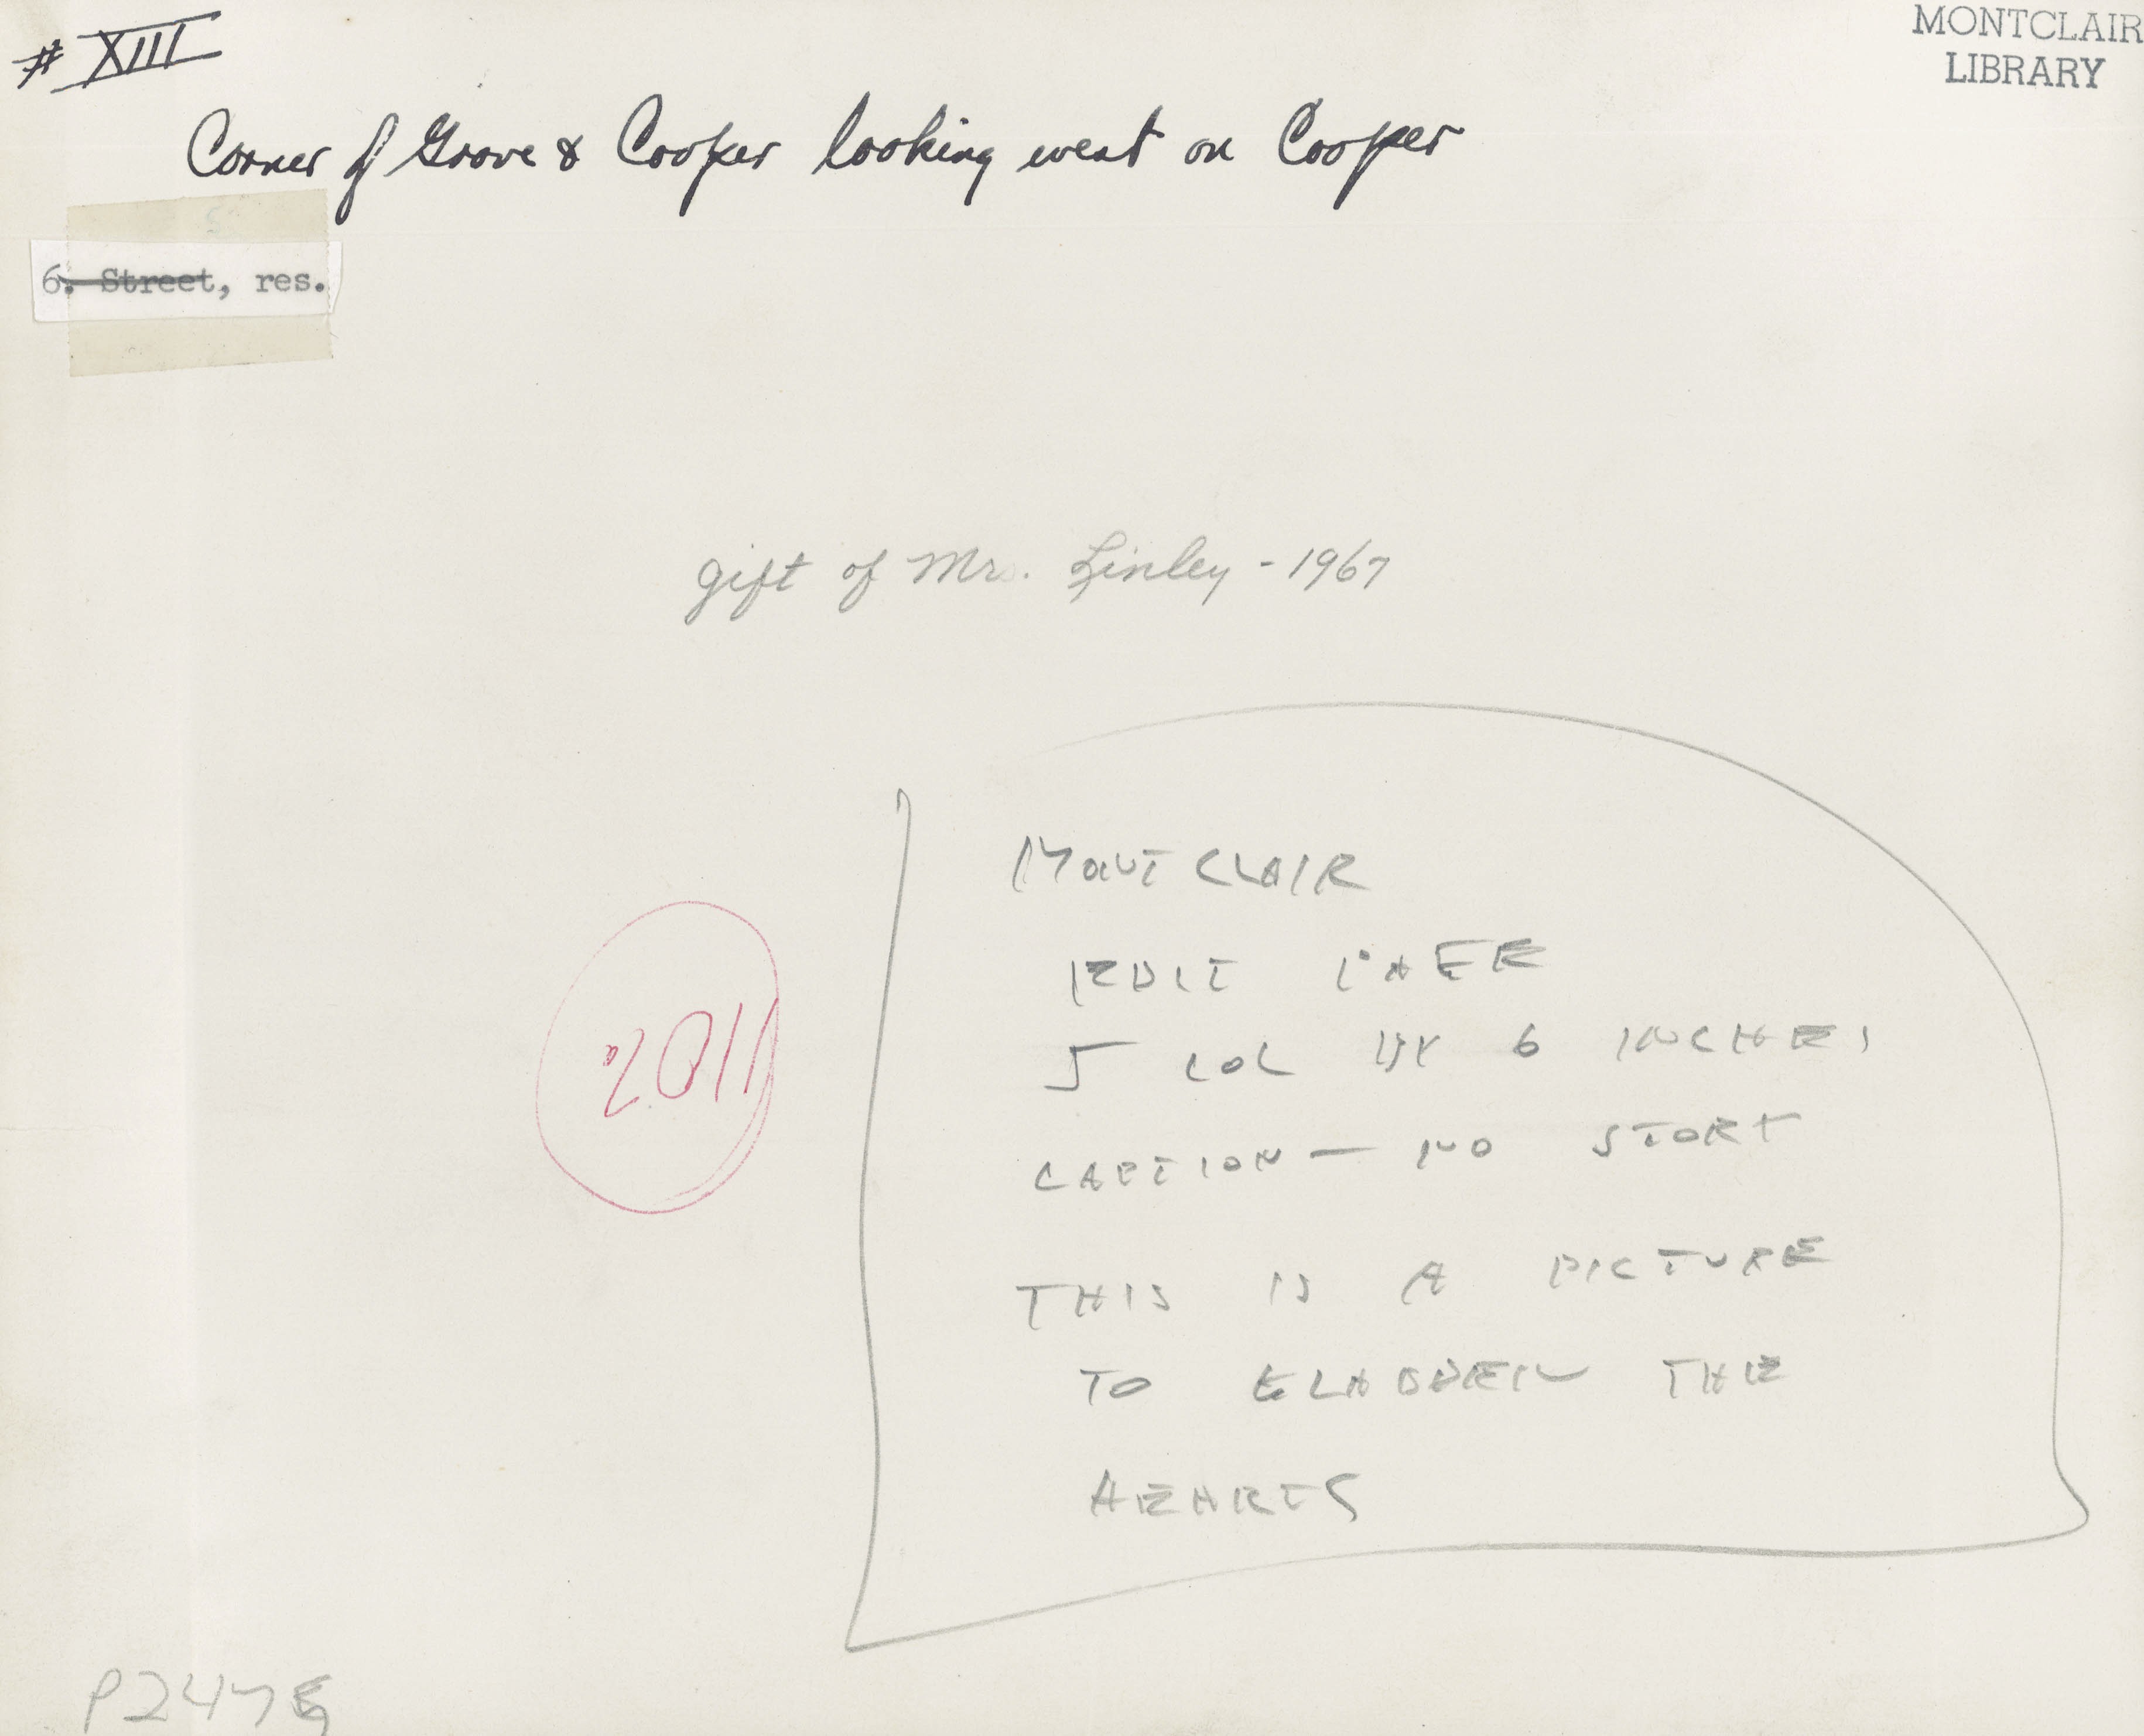 # XIII
MONTCLAIR
LIBRARY
Corner of Grove & Cooper looking west on Cooper
6. Street, res.
gift of Mrs. Linley - 1967
MONTCLAIR
EDIT PAGE
5 COL BY 6 INCHES
CAPTION — NO STORY
THIS IS A PICTURE
TO GLADDEN THE
HEARTS
110%